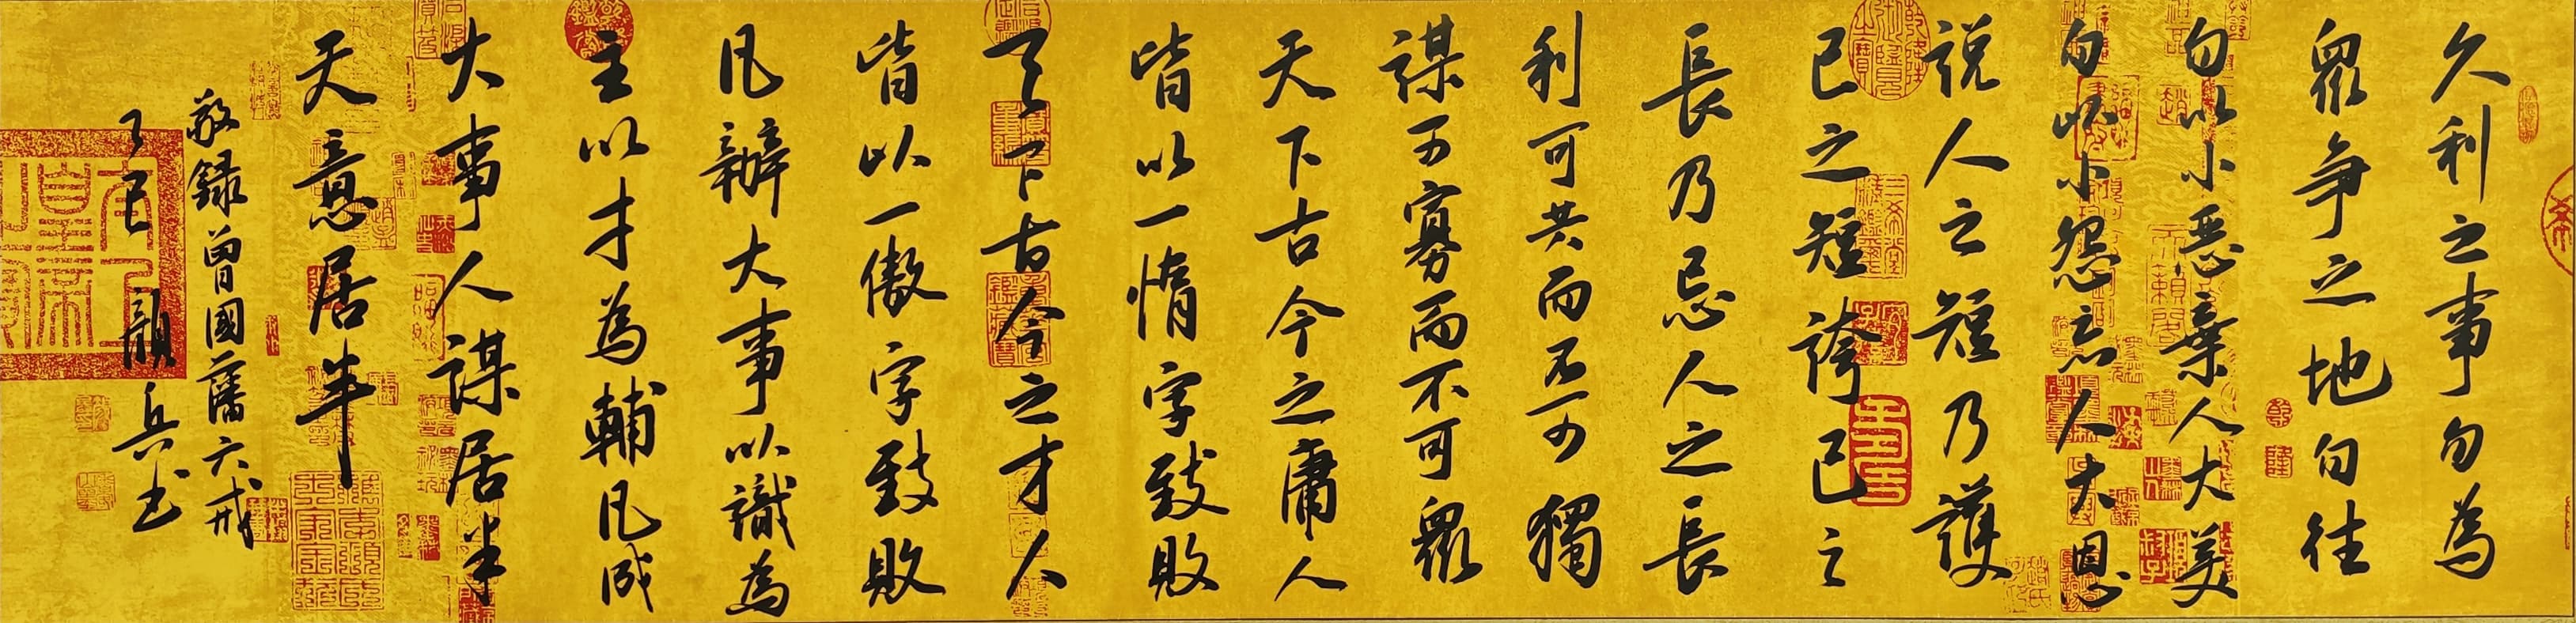 久利之事勿為
眾争之地勿往
勿以小惡棄人大美
勿以小怨忘人大恩
説人之短乃護
己之短誇己之
長乃忌人之長
利可共而不可獨
謀可寡而不可眾
天下古今之庸人
皆以一惰字致敗
天下古今之才人
皆以一傲字致敗
凡辦大事以識為
主以才為輔凡成
大事人謀居半
天意居半
敬録曾國藩六戒
乙巳 兵书